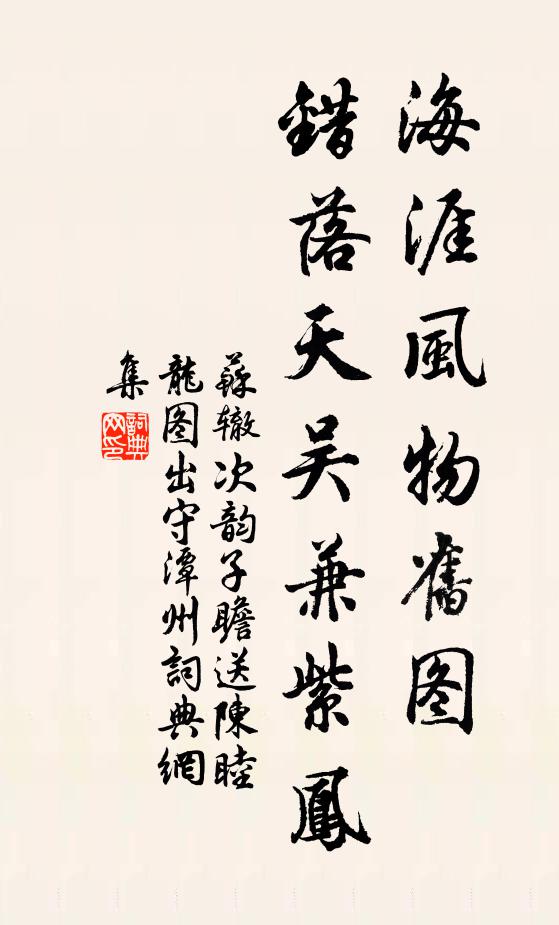 海涯風物舊图
錯落天吴兼紫鳳
蘇辙次韵子瞻送陳睦
龍图出守潭州詞典網
集
詞典
网印